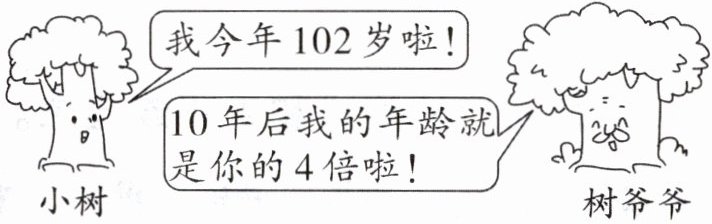 我今年102岁啦！
10年后我的年龄就
是你的4倍啦！
小树
树爷爷